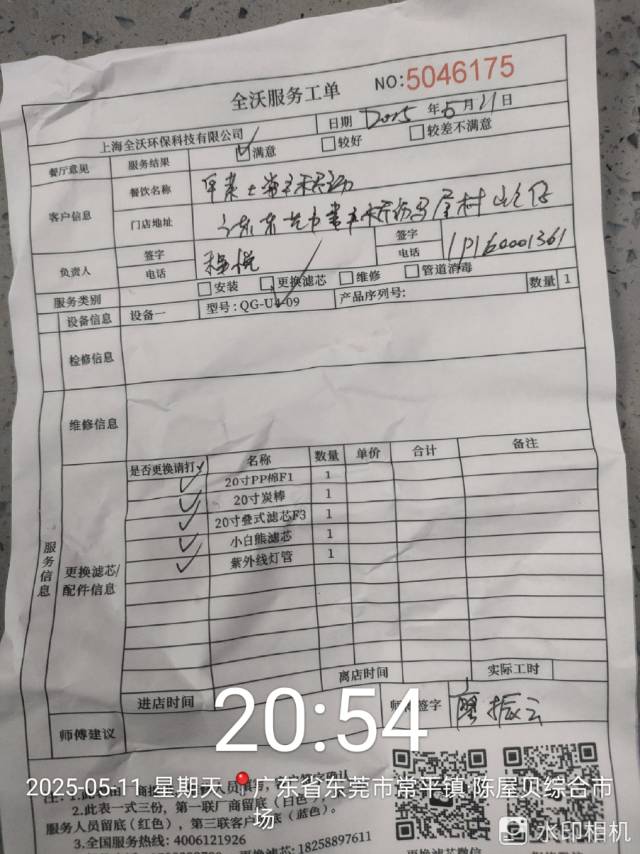 全沃服务工单
NO:5046175
上海全沃环保科技有限公司 日期 2025 年 5 月 11 日
餐厅意见 服务结果 满意 较好 较差不满意
客户信息 餐饮名称
门店地址 广东东
负责人 签字 签字
电话 电话 19160001361
服务类别 安装 更换滤芯 维修 管道消毒
设备信息 设备一 型号:QG-U4-09 产品序列号: 数量 1
检修信息
维修信息
服务信息
更换滤芯/配件信息
是否更换请打✓ 名称 数量 单价 合计 备注
✓ 20寸PP棉F1 1
✓ 20寸炭棒 1
✓ 20寸叠式滤芯F3 1
✓ 小白熊滤芯 1
✓ 紫外线灯管 1
进店时间 离店时间 实际工时
师傅建议 签字 廖振云
20:54
2025-05-11 星期天 广东省东莞市常平镇·陈屋贝综合市
场
2.此表一式三份，第一联厂商留底（白色）
服务人员留底(红色)，第三联客户 （蓝色）。
3.全国服务热线: 4006121926 18258897611
水印相机